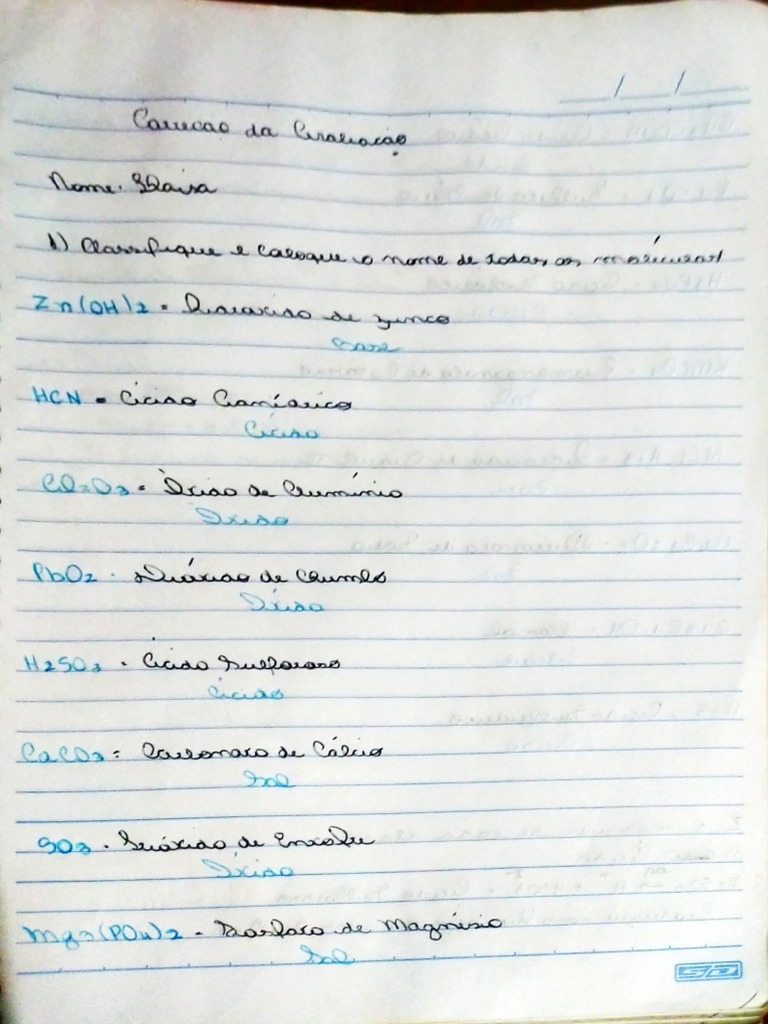 Correcao da Avaliacão
Nome: Thaisa
1) Classifique e coloque o nome de todas as moléculas
Zn(OH)2 = Hidróxido de zinco
Base
HCN = Ácido Cianídrico
Ácido
Al2O3 = Óxido de Alumínio
Óxido
PbO2 - Dióxido de Chumbo
Óxido
H2SO3 - Ácido Sulforoso
Ácido
CaCO3 = Carbonato de Cálcio
Sal
SO3 - Trióxido de Enxofre
Óxido
Mg3(PO4)2 - Fosfato de Magnésio
Sal
SD